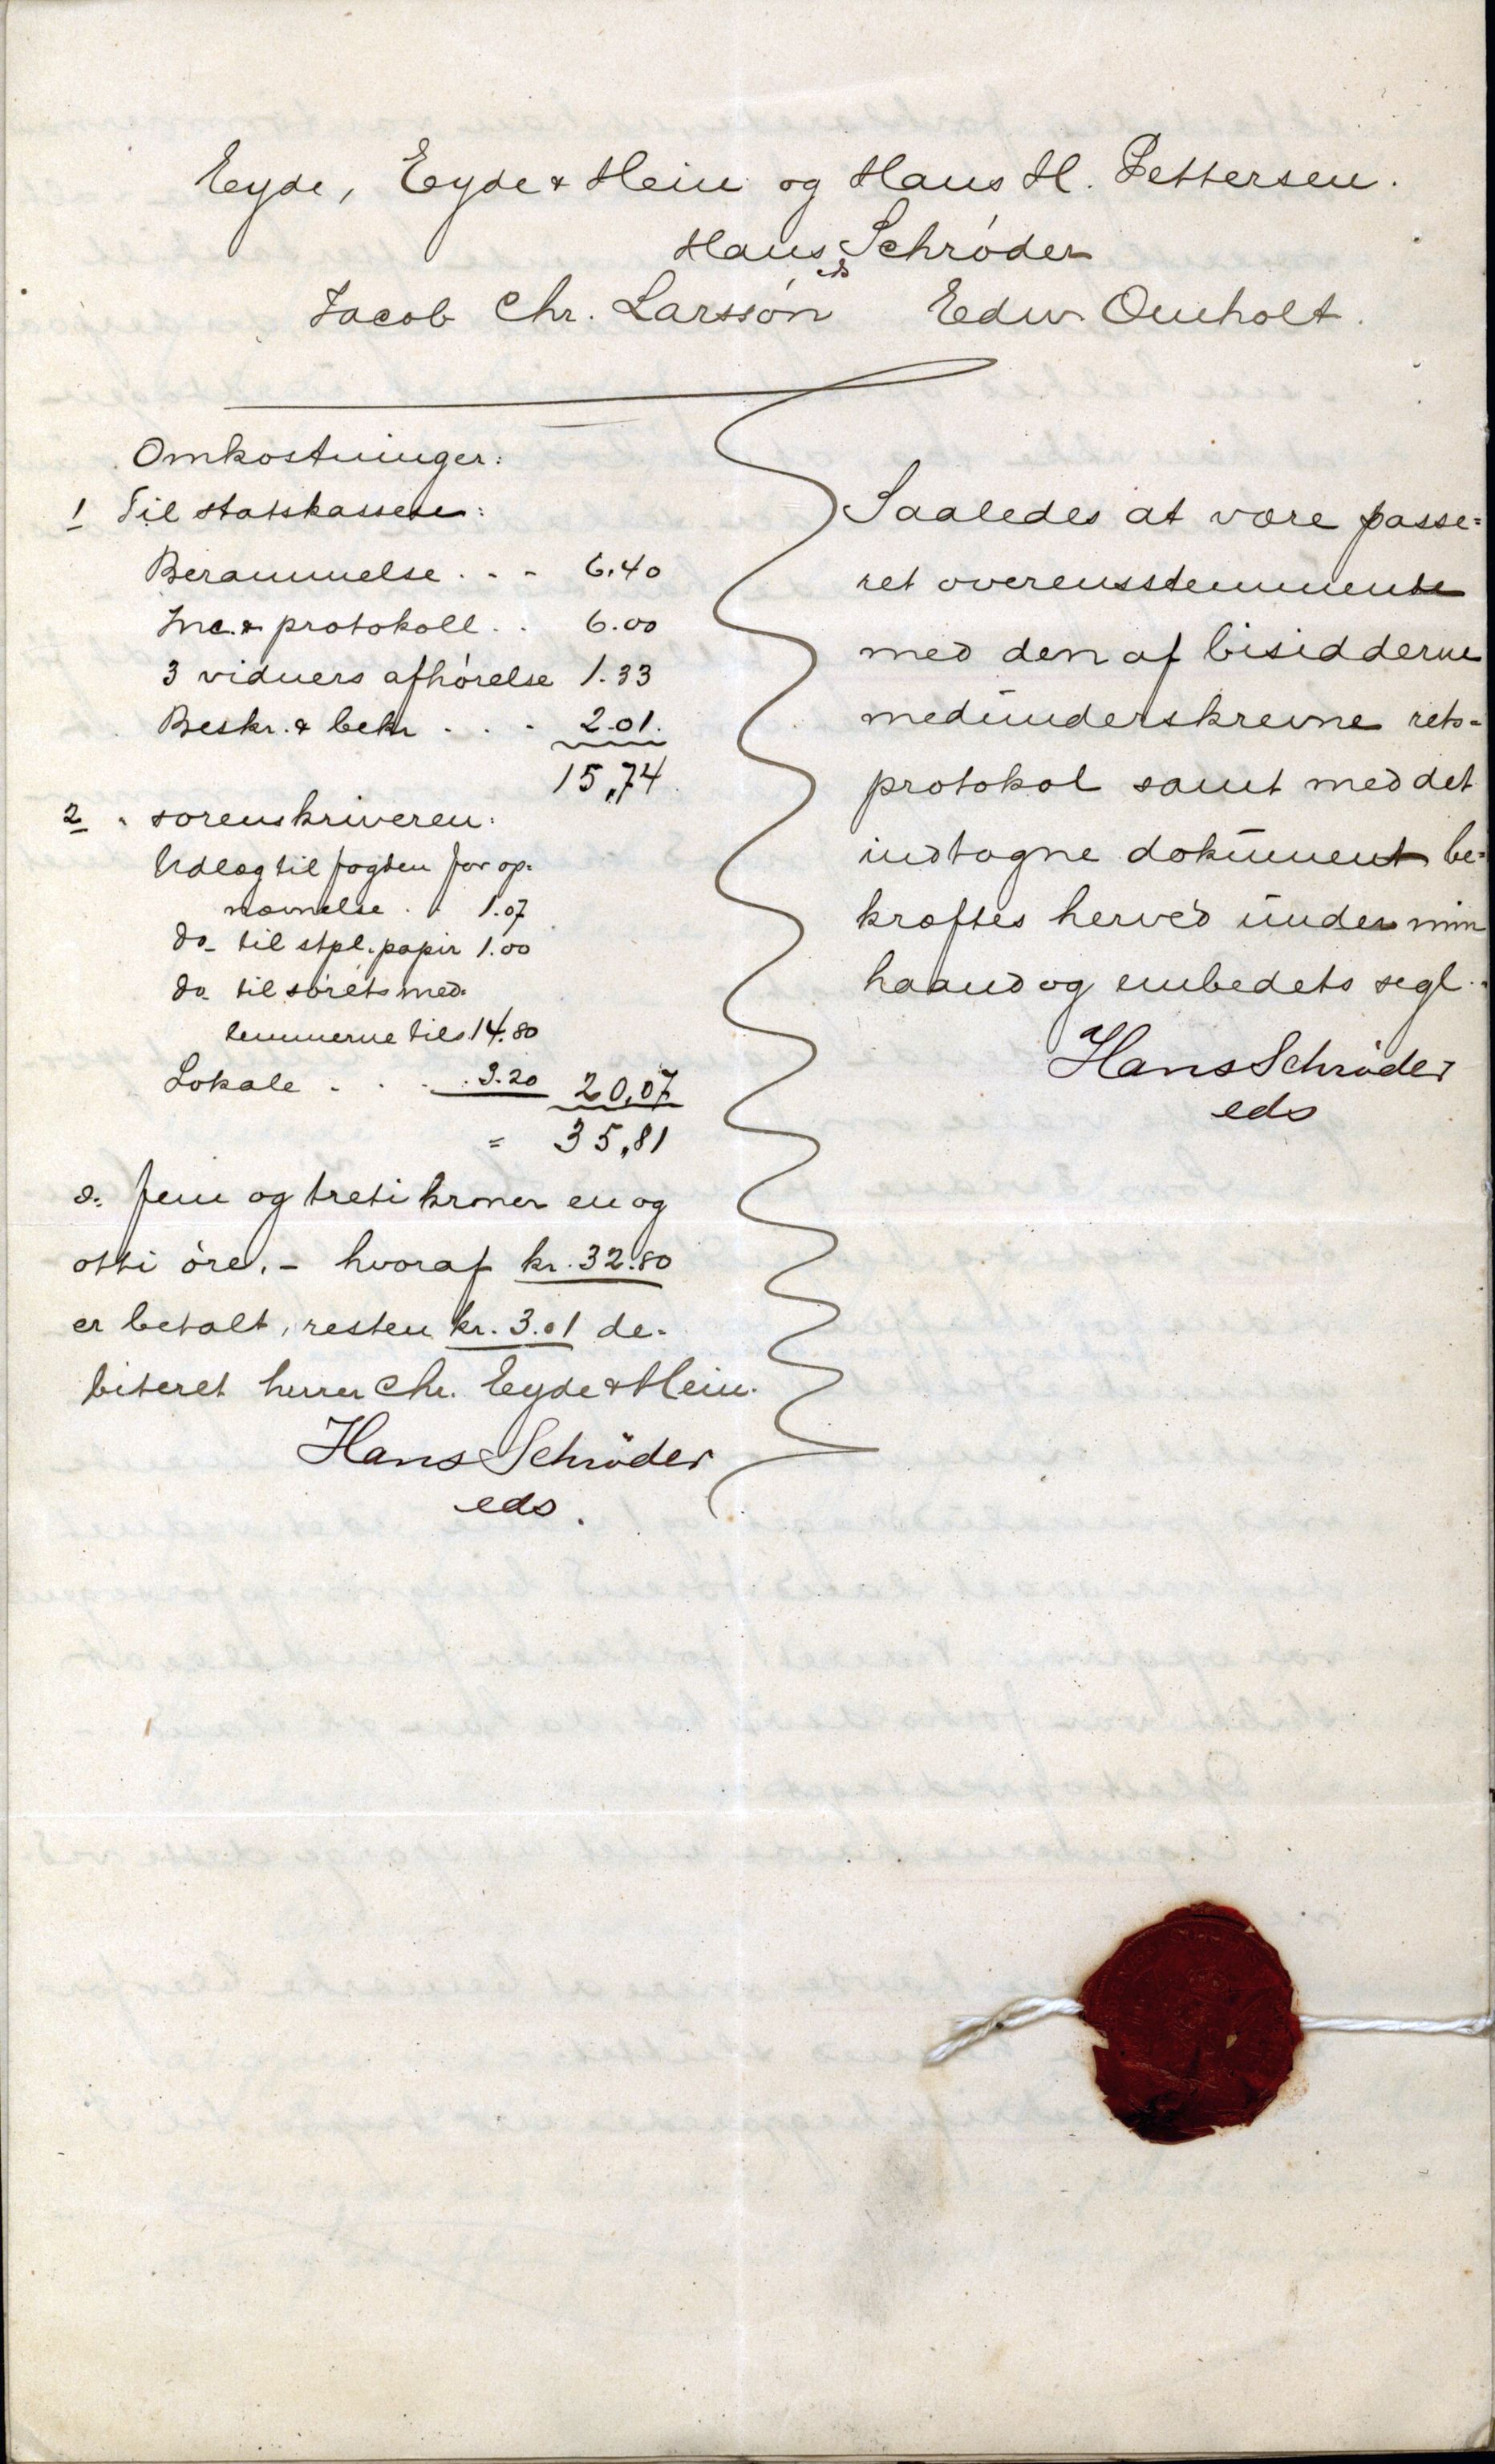 Eyde, Eyde & Hein og Hans H. Pettersen.
Hans Schrøder
eds
Jacob Chr. Larssøn Edw Omholt.
Omkostninger:
1 Til statskassen:
Berammelse . - - 6.40
Inc. & protokoll . . 6.00
3 vidners afhørelse 1.33
Beskr. & bekr . . . 2.01.
15,74
2 " sorenskriveren:
Udlæg til fogden for op-
nævnelse . . 1.07
do. til stpl. papir 1.00
do. til sørets med-
lemmerne tils 14.80
Lokale . . . 3.20 20,07
= 35,81
ɔ: fem og treti kroner en og
otti øre. - hvoraf kr. 32.80
er betalt, resten kr. 3.01 de-
biteret herrer Chr. Eyde & Hein.
Hans Schrøder
eds.
Saaledes at være passe=
ret overensstemmende
med den af bisidderne
medunderskrevne rets=
protokol samt med det
indtagne dokument be=
kræftes herved under min
haand og embedets segl.
Hans Schrøder
eds